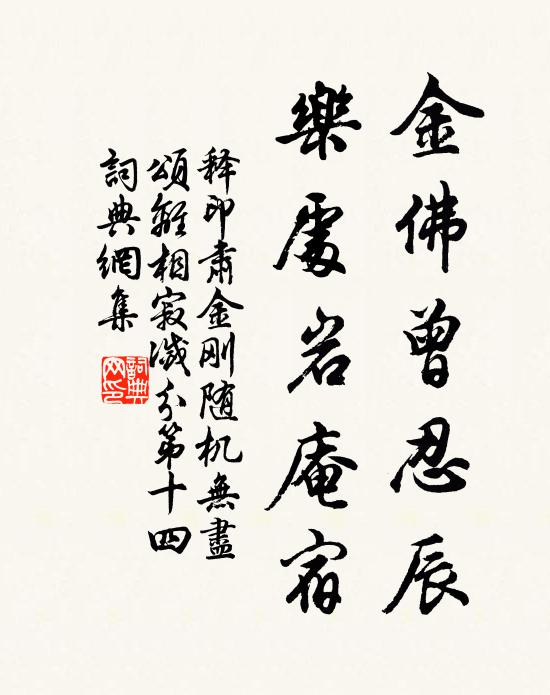 金佛曾忍辰
樂處岩庵宿
释印肃金刚随机無盡
頌離相寂滅分第十四
詞典網集
詞典網印